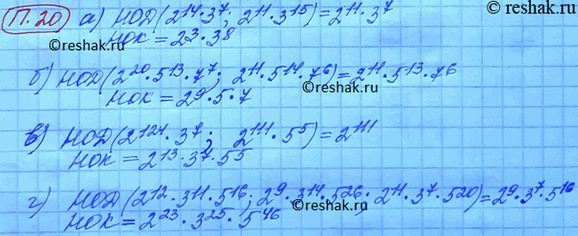 П.20) а) НОД(2¹⁴·3⁷; 2¹¹·3¹⁵)=2¹¹·3⁷
НОК=2³·3⁸
© reshak.ru
б) НОД(2²⁰·5¹³·7⁷; 2¹¹·5¹⁴·7⁶)=2¹¹·5¹³·7⁶
НОК=2⁹·5·7
© reshak.ru
в) НОД(2¹²¹·3⁷; 2¹¹¹·5⁵)=2¹¹¹
НОК=2¹³·3⁷·5⁵
г) НОД(2¹²·3¹¹·5¹⁶; 2⁹·3¹⁴·5²⁶; 2¹¹·3⁷·5²⁰)=2⁹·3⁷·5¹⁶
© reshak.ru
НОК=2²³·3²⁵·5⁴⁶